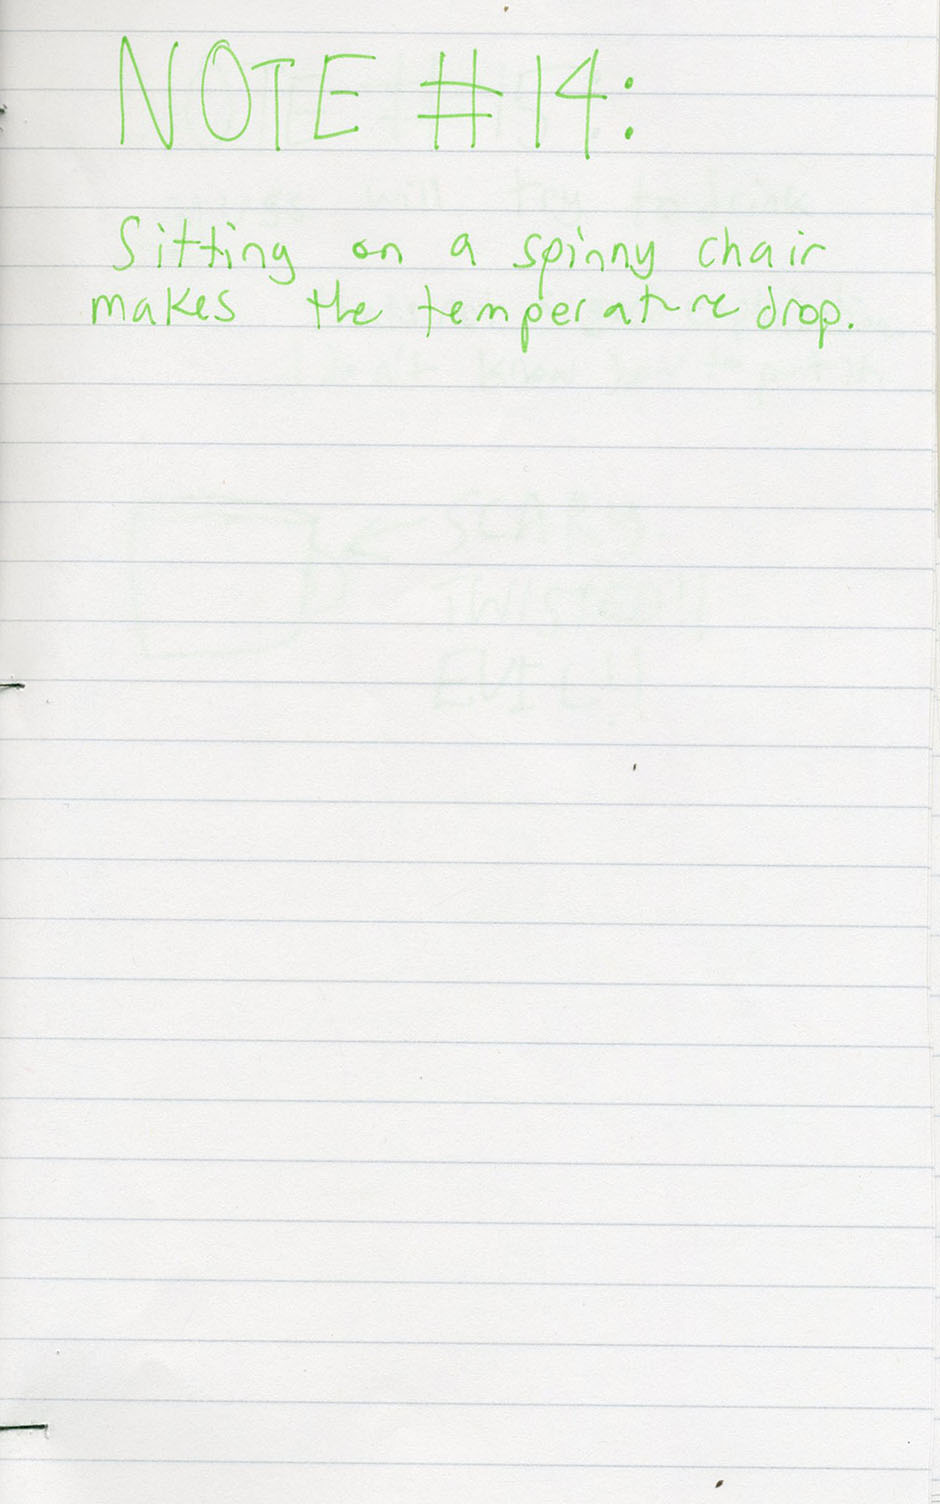 NOTE #14:
Sitting on a spinny chair
makes the temperature drop.